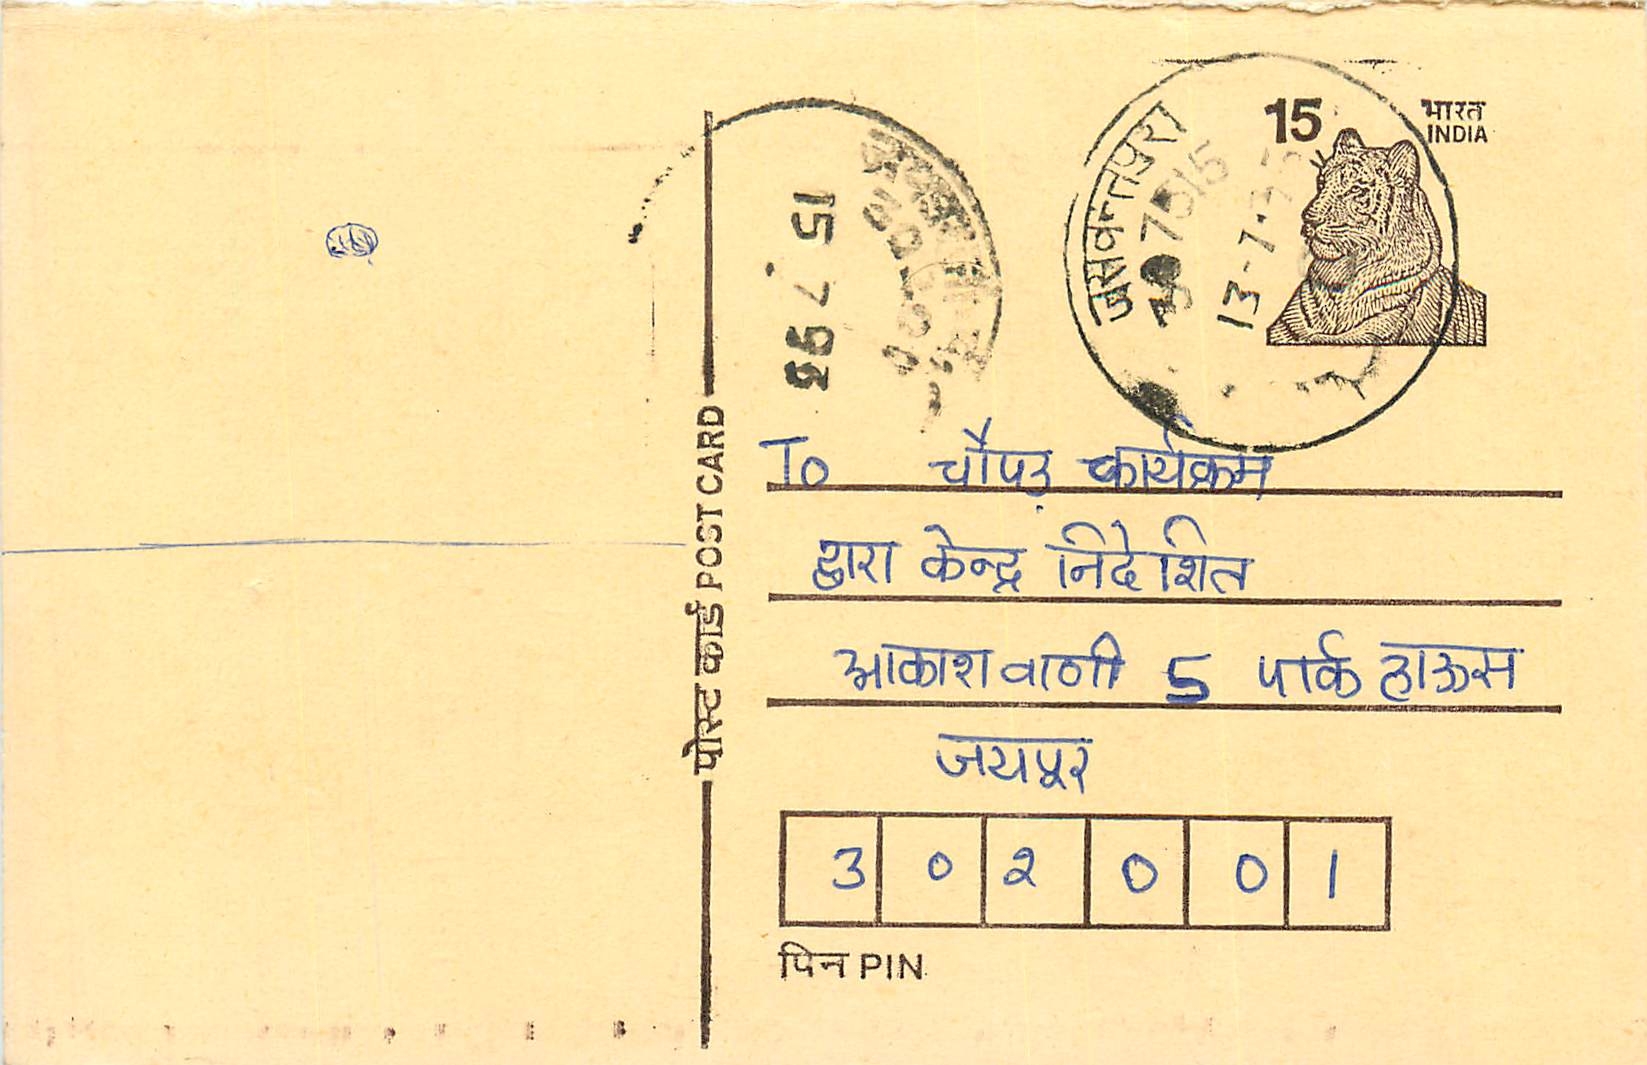 15
भारत
INDIA
जसवन्तपुरा
307515
13-7-93
15 7 93
पोस्ट कार्ड POST CARD
To चौपड़ कार्यक्रम
द्वारा केन्द्र निदेशित
आकाशवाणी 5 पार्क हाऊस
जयपूर
3 0 2 0 0 1
पिन PIN